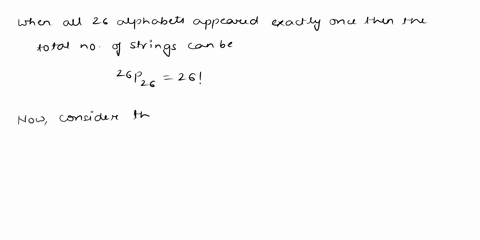 When all 26 alphabets appeared exactly once then the
total no. of strings can be
²⁶P₂₆ = 26!
Now, consider th